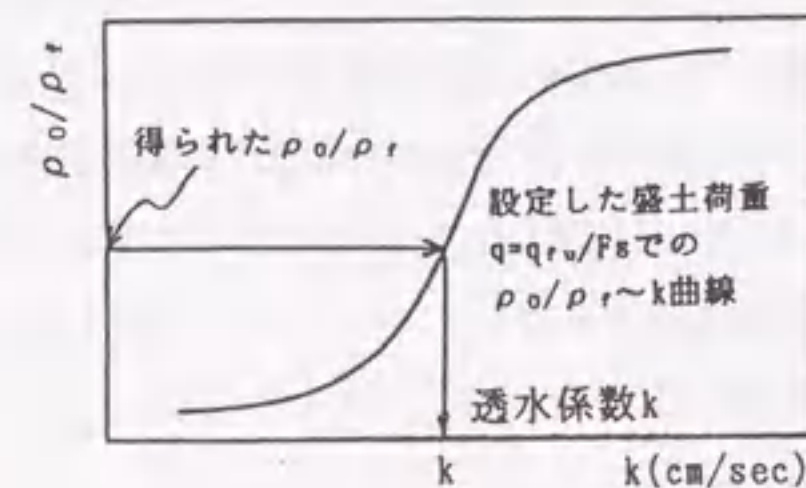 ρ₀/ρ_f
得られたρ₀/ρ_f
設定した盛土荷重
q=q_fu/Fsでの
ρ₀/ρ_f～k曲線
透水係数k
k
k(cm/sec)